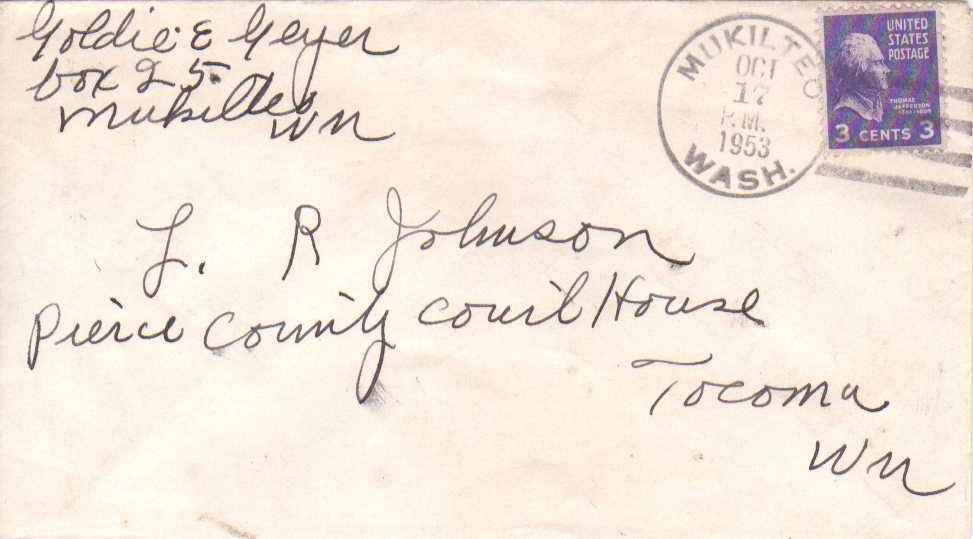 Goldie E Geyer
box 25
Mukilteo
Wn
MUKILTEO
OCT
17
P.M.
1953
WASH.
UNITED
STATES
POSTAGE
THOMAS
JEFFERSON
3 CENTS 3
L. R Johnson
Pierce County Court House
Tocoma
Wn